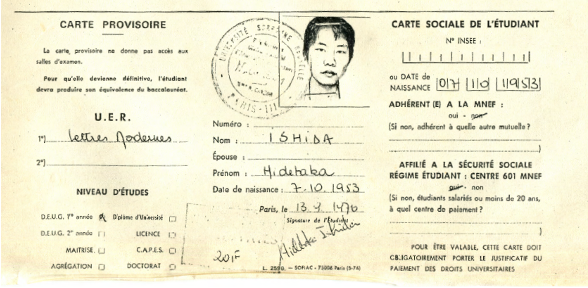 CARTE PROVISOIRE
La carte provisoire ne donne pas accès aux
salles d'examen.
Pour qu'elle devienne définitive, l'étudiant
devra produire son équivalence du baccalauréat.
U.E.R.
1°) Lettres Modernes
2°)
NIVEAU D'ÉTUDES
D.E.U.G. 1° année Diplôme d'Université
D.E.U.G. 2° année LICENCE
MAITRISE C.A.P.E.S.
AGRÉGATION DOCTORAT
UNIVERSITÉ SORBONNE
PARIS-III
Numéro :
Nom : ISHIDA
Épouse :
Prénom : Hidetaka
Date de naissance : 7.10.1953
Paris, le 13.9.1976
Signature de l'Étudiant
Hidetaka Ishida
20F
L. 2550. - SOFIAC - 75006 Paris (5-74)
CARTE SOCIALE DE L'ÉTUDIANT
N° INSEE :
ou DATE de
NAISSANCE 07 10 1953
ADHÉRENT(E) A LA MNEF :
oui - non
(Si non, adhérent à quelle autre mutuelle ?
AFFILIÉ A LA SÉCURITÉ SOCIALE
RÉGIME ÉTUDIANT : CENTRE 601 MNEF
oui - non
(Si non, étudiants salariés ou moins de 20 ans,
à quel centre de paiement ?
POUR ÊTRE VALABLE, CETTE CARTE DOIT
OBLIGATOIREMENT PORTER LE JUSTIFICATIF DU
PAIEMENT DES DROITS UNIVERSITAIRES